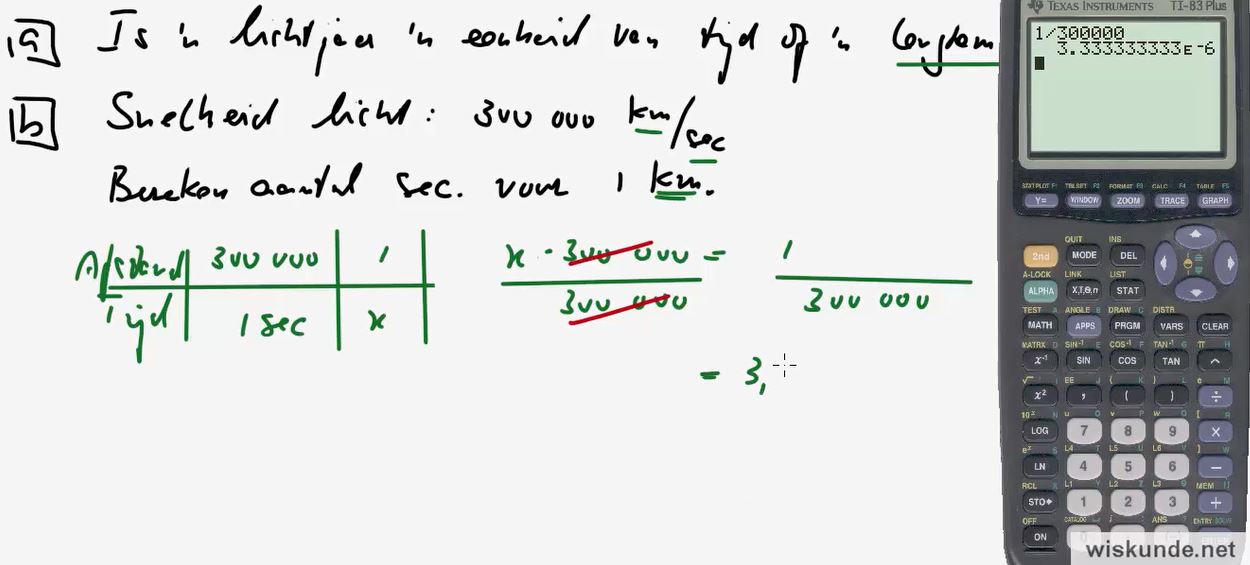 a Is 'n lichtjaar 'n eenheid van tijd of 'n
b Snelheid licht: 300 000 km/sec
Bereken aantal sec. voor 1 km.
Afstand 300 000 1
Tijd 1 sec x
x · 300 000 = 1
300 000 300 000
= 3,
TEXAS INSTRUMENTS TI-83 Plus
1/300000
3.333333333E-6
STAT PLOT F1 TBLSET F2 FORMAT F3 CALC F4 TABLE F5
Y= WINDOW ZOOM TRACE GRAPH
QUIT INS
2nd MODE DEL
A-LOCK LINK LIST
ALPHA X,T,θ,n STAT
TEST A ANGLE B DRAW C DISTR
MATH APPS PRGM VARS CLEAR
MATRX D SIN-1 E COS-1 F TAN-1 G π H
x-1 SIN COS TAN ^
√ I EE J { K } L e M
x2 , ( ) ÷
10x N u O v P w Q [ R
LOG 7 8 9 ×
ex S L4 T L5 U L6 V ] W
LN 4 5 6 −
RCL X L1 Y L2 Z L3 θ MEM "
STO 1 2 3 +
OFF CATALOG ANS ENTRY SOLVE
ON
wiskunde.net